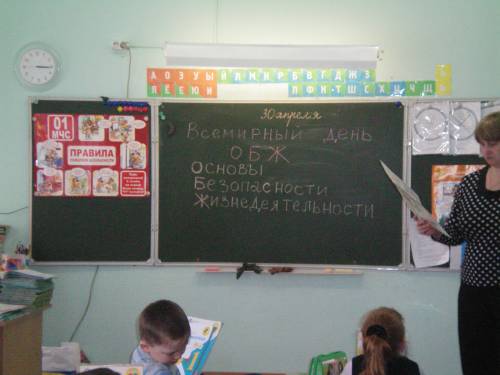 А О Э У Ы Й Л М Н Р Б В Г Д Ж З
Я Ё Е Ю И П Ф К Т Ш С Х Ц Ч Щ
30 апреля
Всемирный день
ОБЖ
Основы
Безопасности
Жизнедеятельности
01
МЧС
ПРАВИЛА